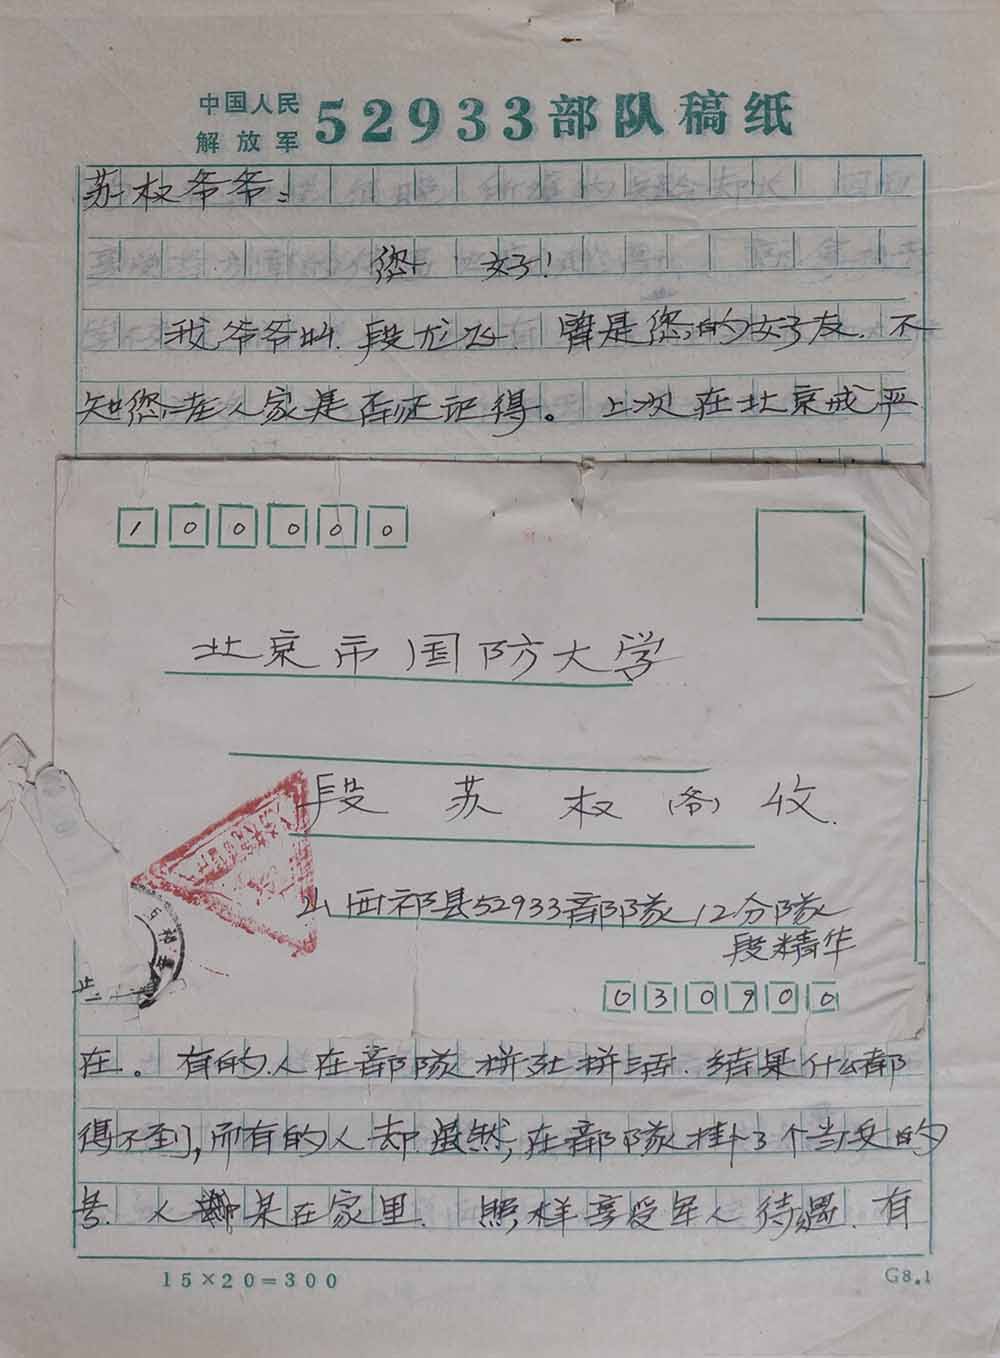 中国人民
解放军
52933部队稿纸
苏权爷爷：
您 好！
我爷爷叫段龙飞．曾是您的好友．不
知您老人家是否还记得。上次在北京戒严
100000
北京市国防大学
段 苏 权 (爷) 收.
山西祁县52933部隊12分隊
段精华
030900
在。有的人在部隊拼死拼活．结果什么都
得不到，而有的人却虽然，在部隊挂了个当兵的
号．人 呆在家里．照样享受军人待遇．有
15×20=300
G8.1